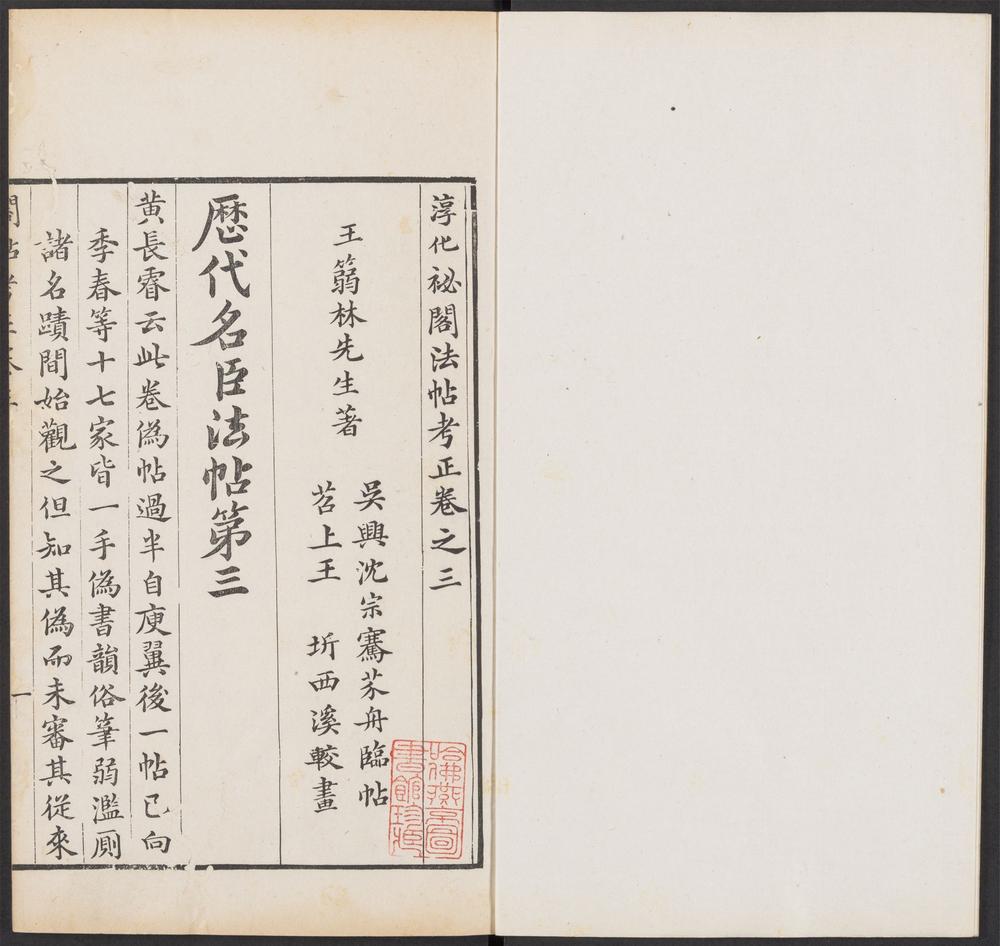 淳化祕閣法帖考正卷之三
王篛林先生著
吳興沈宗騫芥舟臨帖
苕上王　圻西溪較畫
歷代名臣法帖第三
黃長睿云此卷偽帖過半自庾翼後一帖已向
季春等十七家皆一手偽書韻俗筆弱濫厠
諸名蹟間始觀之但知其偽而未審其從來
一
哈佛燕京圖
書館珍藏